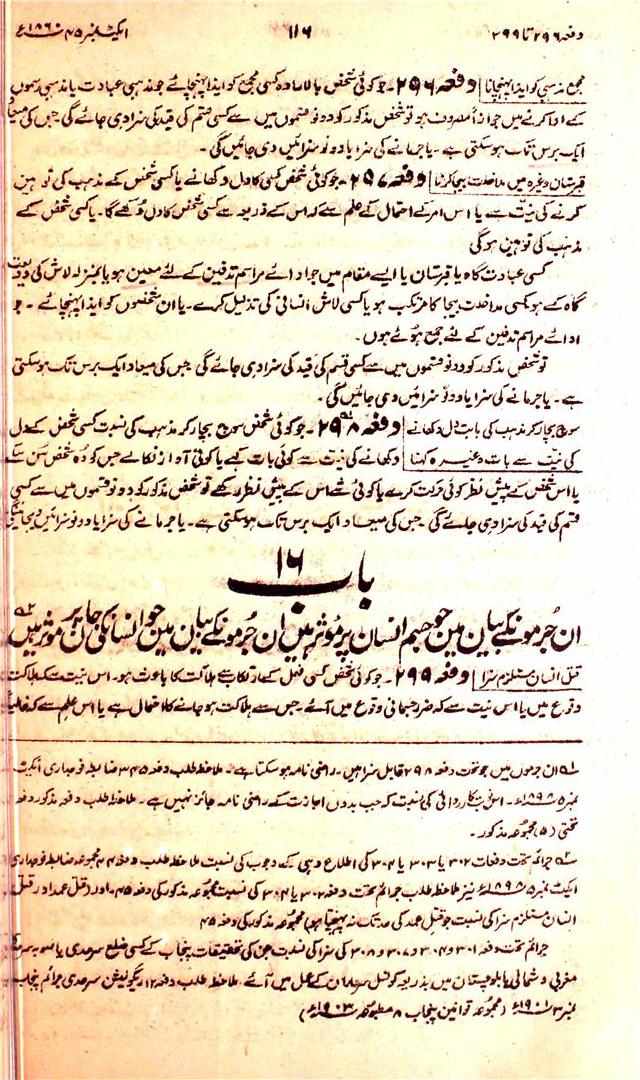 دفعہ ۲۹۶ تا ۲۹۹
۱۱۶
ایکٹ نمبر ۴۵ ۱۸۶۰ء
مجمع مذہبی کو ایذا پہنچانا دفعہ ۲۹۶۔ جو کوئی شخص بالارادہ کسی مجمع کو ایذا پہنچائے جو مذہبی عبادت یا مذہبی رسموں
کے ادا کرنے میں جوازاً مصروف ہو تو شخص مذکور کو دونوں قسموں میں سے کسی قسم کی قید کی سزا دی جائے گی جس کی میعاد
ایک برس تک ہو سکتی ہے۔ یا جرمانے کی سزا یا دونو سزائیں دی جائیں گی۔
قبرستان وغیرہ میں مداخلت بیجا کرنا دفعہ ۲۹۷۔ جو کوئی شخص کسی کا دل دکھانے یا کسی شخص کے مذہب کی توہین
کرنے کی نیت سے یا اس امر کے احتمال کے علم سے کہ اس کے ذریعہ سے کسی شخص کا دل دُکھے گا۔ یا کسی شخص کے
مذہب کی توہین ہوگی
کسی عبادت گاہ یا قبرستان یا ایسے مقام میں جو ادائے مراسم تدفین کے لئے معین ہو یا بمنزلہ لاش کی ودیعت
گاہ کے ہو کسی مداخلت بیجا کا مرتکب ہو یا کسی لاش انسانی کی تذلیل کرے۔ یا ان شخصوں کو ایذا پہنچائے۔ جو
ادائے مراسم تدفین کے لئے جمع ہوئے ہوں۔
تو شخص مذکور کو دونوں قسموں میں سے کسی قسم کی قید کی سزا دی جائے گی جس کی میعاد ایک برس تک ہو سکتی
ہے۔ یا جرمانے کی سزا یا دونو سزائیں دی جائیں گی۔
سوچ بچار کر مذہب کی بابت دل دکھانے دفعہ ۲۹۸۔ جو کوئی شخص سوچ بچار کر مذہب کی نسبت کسی شخص کے دل
کی نیت سے بات وغیرہ کہنا دکھانے کی نیت سے کوئی بات کہے یا کوئی آواز نکالے جس کو وہ شخص سن سکے
یا اس شخص کے پیش نظر کوئی حرکت کرے یا کوئی شے اس کے پیش نظر رکھے تو شخص مذکور کو دونوں قسموں میں سے کسی
قسم کی قید کی سزا دی جائے گی جس کی میعاد ایک برس تک ہو سکتی ہے۔ یا جرمانے کی سزا یا دونو سزائیں دیجائینگی
باب ۱۶
ان جرمونکے بیان مین جو جسم انسان پر مؤثر ہیں ان جرمونکے بیان مین جو انسان کی جان پر مؤثر ہیں
قتل انسان مستلزم سزا دفعہ ۲۹۹۔ جو کوئی شخص کسی فعل کے ارتکاب سے ہلاکت کا باعث ہو۔ اس نیت سے کہ ہلاکت
وقوع میں یا اس نیت سے کہ ضرر جسمانی وقوع میں آئے۔ جس سے ہلاکت ہو جانے کا احتمال ہے یا اس علم سے کہ غالباً
ان جرموں میں جو تحت دفعہ ۲۹۸ قابل سزا ہیں۔ راضی نامہ ہو سکتا ہے۔ ملاحظہ طلب دفعہ ۳۴۵ ضابطہ فوجداری ایکٹ
نمبر ۵ ۱۸۹۸ء۔ اس کارروائی کی نسبت کہ جب بدوں اجازت کے راضی نامہ جائز نہیں ہے۔ ملاحظہ طلب دفعہ مذکور دفعہ
تحتی (۵) مجموعہ مذکور۔
جرائم تحت دفعات ۳۰۲ یا ۳۰۳ یا ۳۰۴ کی اطلاع دہی کے وجوب کی نسبت ملاحظہ طلب دفعہ ۴۴ مجموعہ ضابطہ فوجداری
ایکٹ نمبر ۵ ۱۸۹۸ء نیز ملاحظہ طلب جرائم تحت دفعہ ۳۰۲ یا ۳۰۴ کی نسبت مجموعہ مذکور کی دفعہ ۴۵۔ اور (قتل عمد اور قتل
انسان مستلزم سزا کی نسبت جو قتل عمد کی حد تک نہ پہنچتا ہو) مجموعہ مذکور کی دفعہ ۴۵
جرائم تحت دفعہ ۳۰۱ و ۳۰۴ و ۳۰۷ و ۳۰۸ کی سزا کی نسبت جن کی تحقیقات پنجاب کے کسی ضلع سرحدی یا صوبہ سرحد
مغربی و شمالی یا بلوچستان میں بذریعہ کونسل سرداران کے عمل میں آئے۔ ملاحظہ طلب دفعہ ۱۲ ریگولیشن سرحدی جرائم پنجاب
نمبر ۳ ۱۹۰۱ء (مجموعہ قوانین پنجاب مطبوعہ ۱۹۰۳ء)